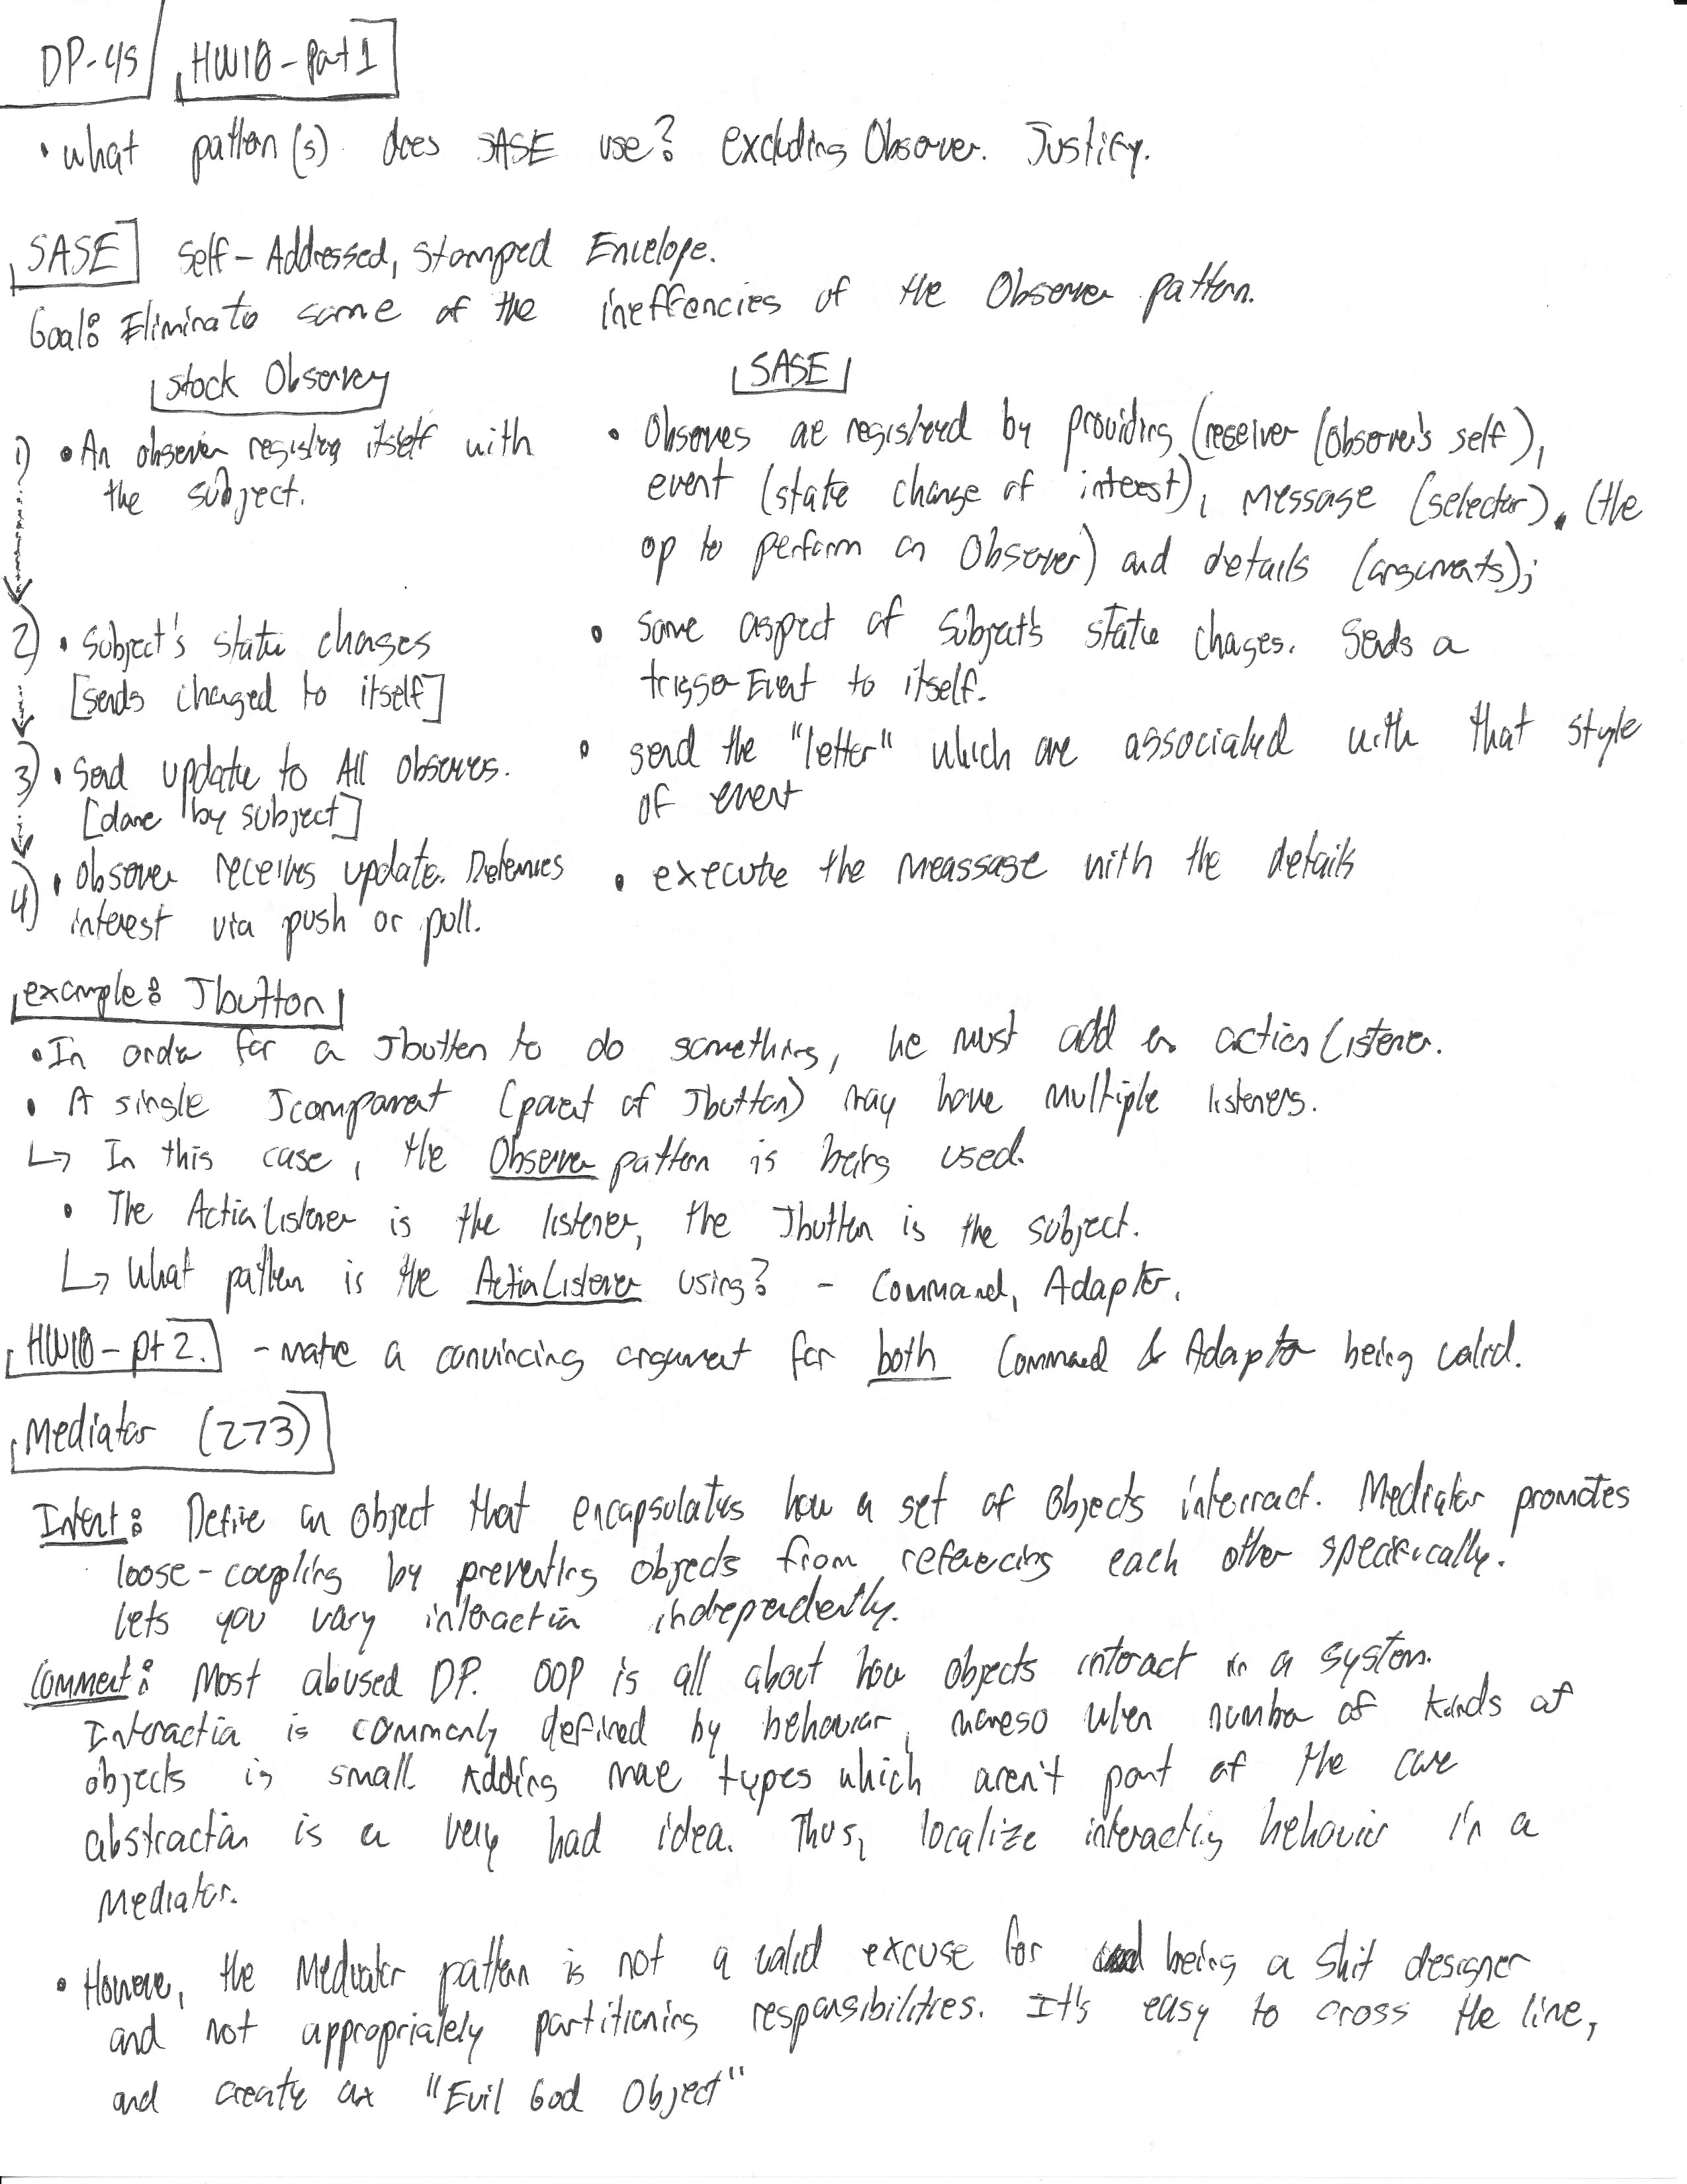 DP-45 HW10 - Part 1
• what pattern(s) does SASE use? excluding Observer. Justify.
SASE Self-Addressed, Stamped Envelope.
Goal: Eliminate some of the ineffencies of the Observer pattern.
Stock Observer
SASE
1) • An observer registers itself with
the subject.
• Observes are registered by providing (receiver (observer's self),
event (state change of interest), message (selector). (the
op to perform on Observer) and details (arguments);
2) • Subject's state changes
[sends changed to itself]
• Some aspect of Subject's state changes. Sends a
trigger Event to itself.
3) • Send update to All observers.
[done by subject]
• send the "letter" which are associated with that style
of event
4) • observer receives update. Determines
interest via push or pull.
• execute the meassage with the details
example: Jbutton
• In order for a Jbutton to do something, he must add an action Listener.
• A single Jcomponent (parent of Jbutton) may have multiple listeners.
↳ In this case, the Observer pattern is being used.
• The ActionListener is the listener, the Jbutton is the subject.
↳ What pattern is the ActionListener using? - Command, Adapter.
HW10 - pt 2. - make a convincing argument for both Command & Adapter being valid.
Mediator (273)
Intent: Define an object that encapsulates how a set of objects interract. Mediator promotes
loose-coupling by preventing objects from referencing each other specifically.
lets you vary interaction independently.
Comment: Most abused DP. OOP is all about how objects interact in a system.
Interaction is commonly defined by behavior, moreso when number of kinds of
objects is small. Adding more types which aren't part of the core
abstraction is a very bad idea. Thus, localize interacting behavior in a
Mediator.
• However, the Mediator pattern is not a valid excuse for being a shit designer
and not appropriately partitioning responsibilities. It's easy to cross the line,
and create an "Evil God Object"